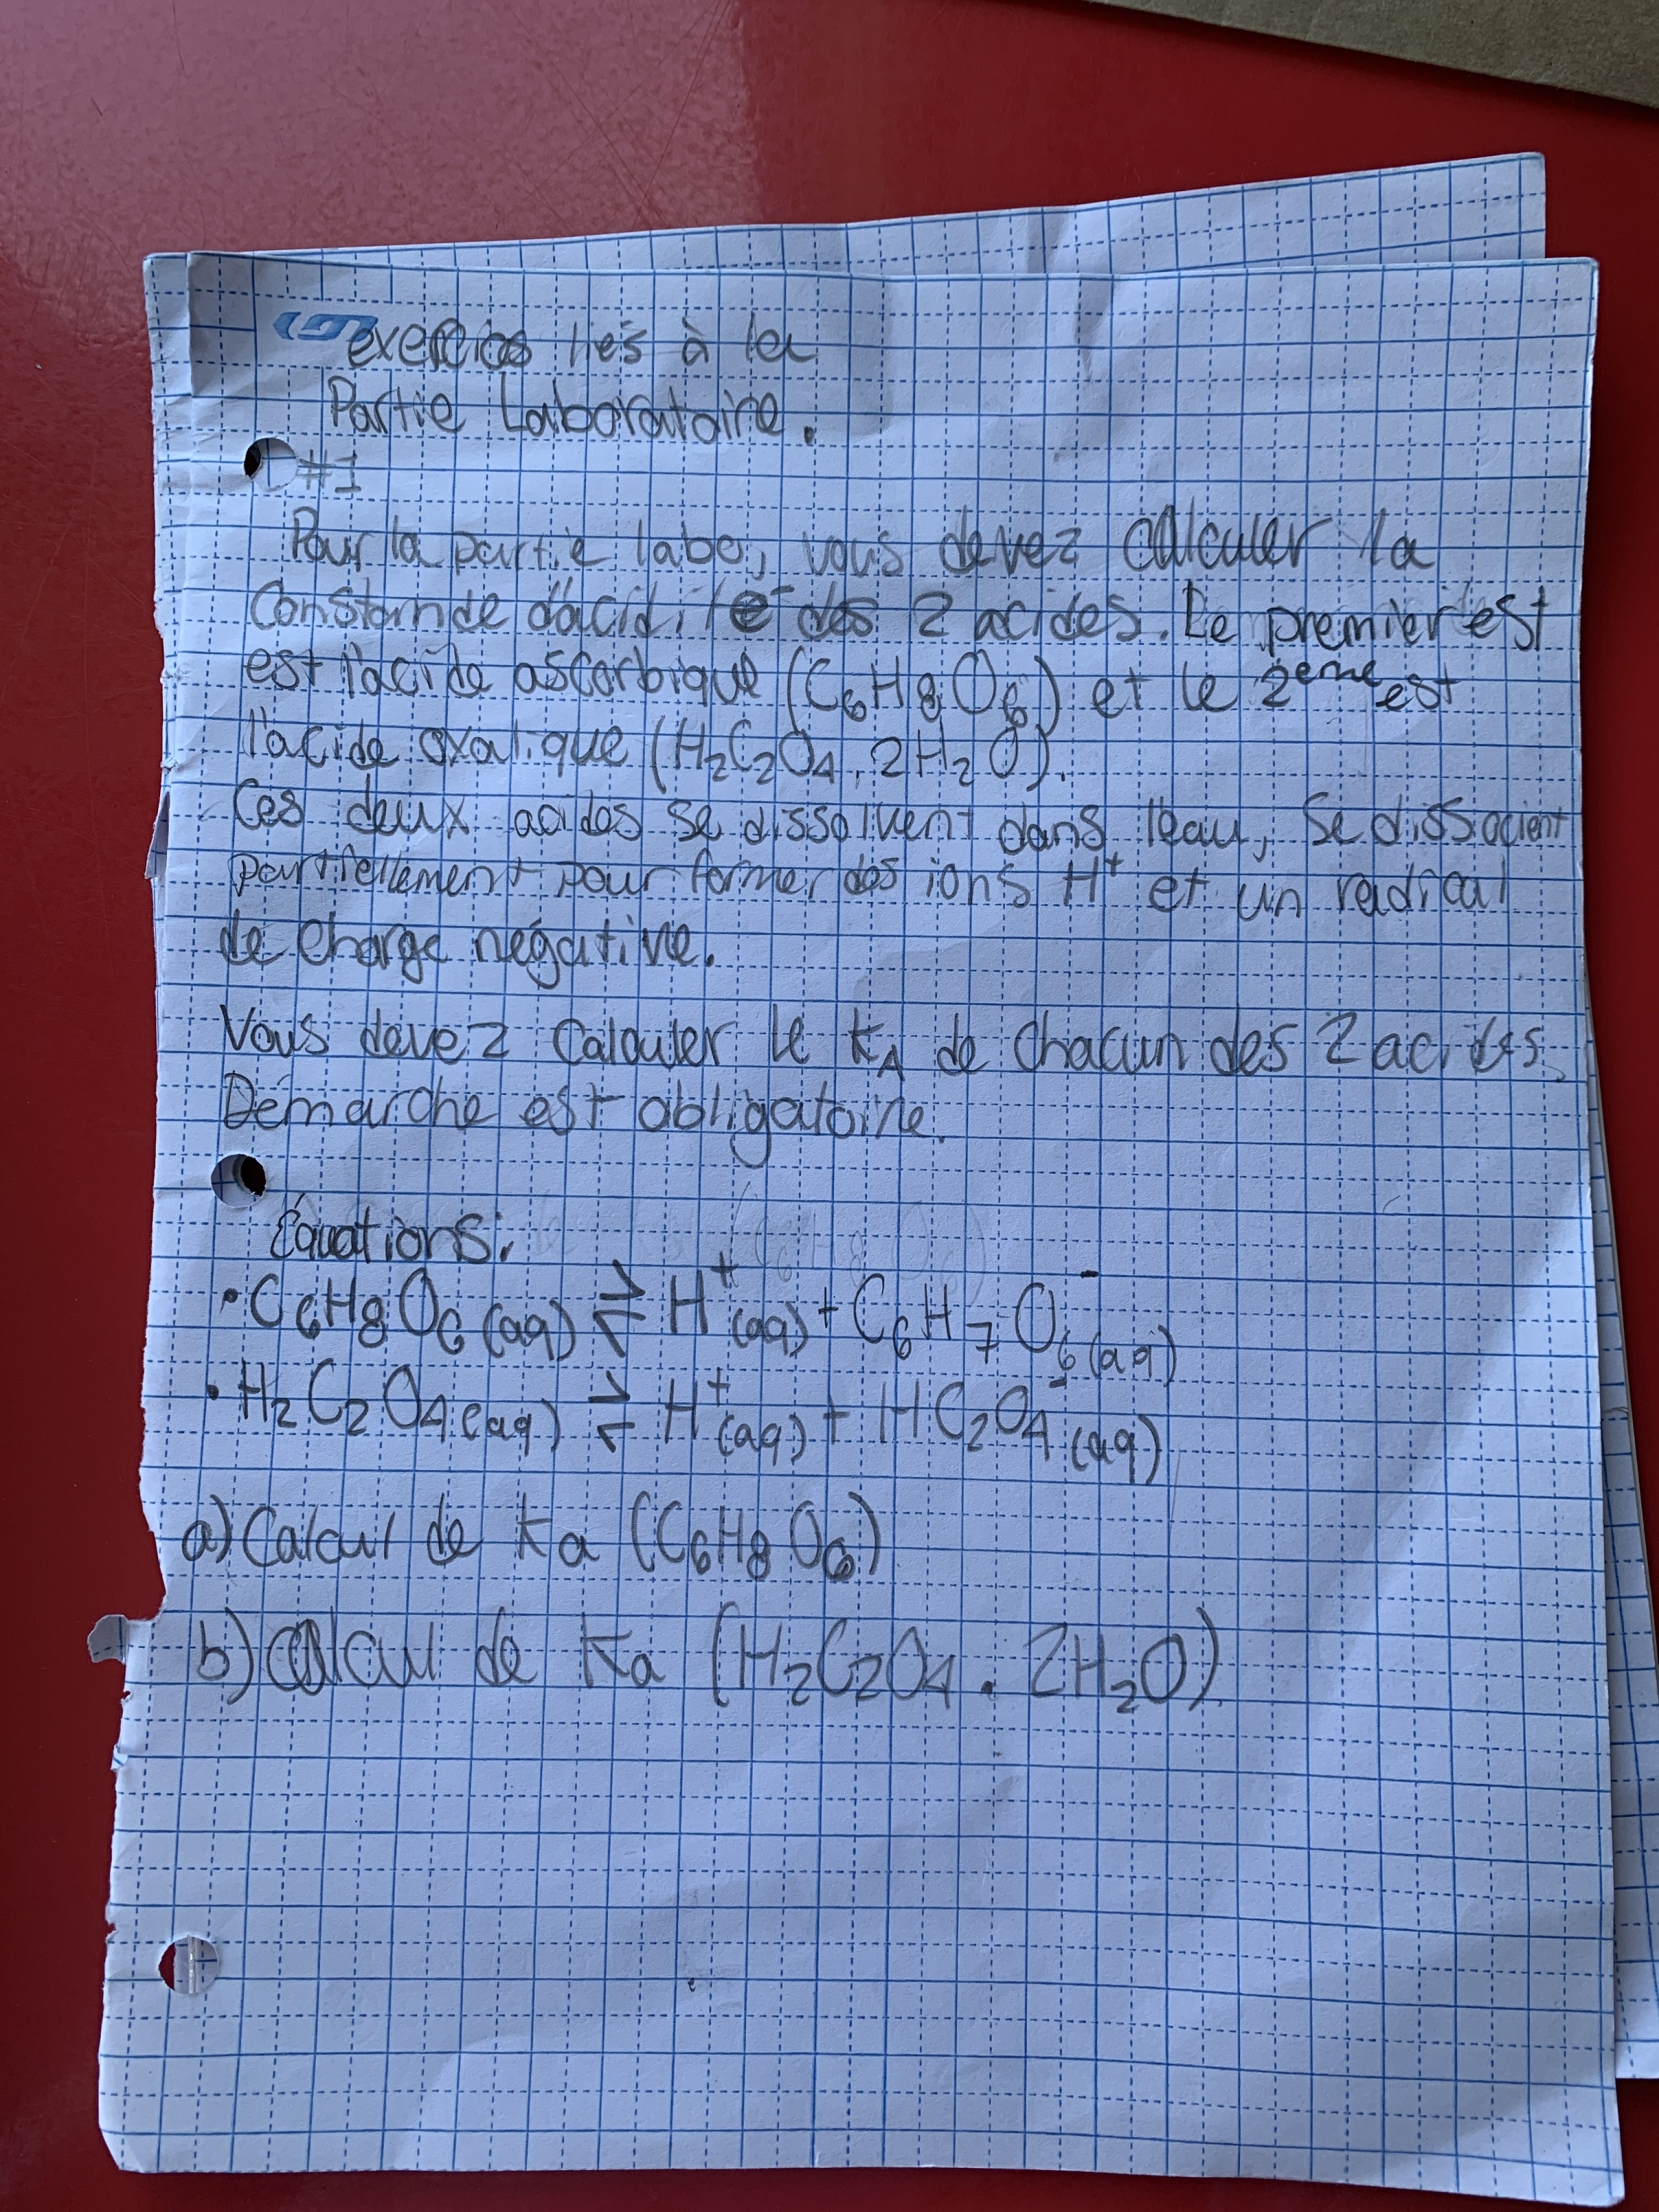 exercices liés à la
Partie Laboratoire.
#1
Pour la partie labo, vous devez calculer la
Constande d'acidité des 2 acides. Le premier est
est l'acide ascorbique (C₆H₈O₆) et le 2ème est
l'acide oxalique (H₂C₂O₄, 2H₂O).
Ces deux acides se dissolvent dans l'eau, Se dissocient
partiellement pour former des ions H⁺ et un radical
de charge négative.
Vous devez Calculer le KA de chacun des 2 acides.
Démarche est obligatoire.
Équations:
• C₆H₈O₆(aq) ⇌ H⁺(aq) + C₆H₇O₆⁻(aq)
• H₂C₂O₄(aq) ⇌ H⁺(aq) + HC₂O₄⁻(aq)
a) Calcul de Ka (C₆H₈O₆)
b) Calcul de Ka (H₂C₂O₄ . 2H₂O)